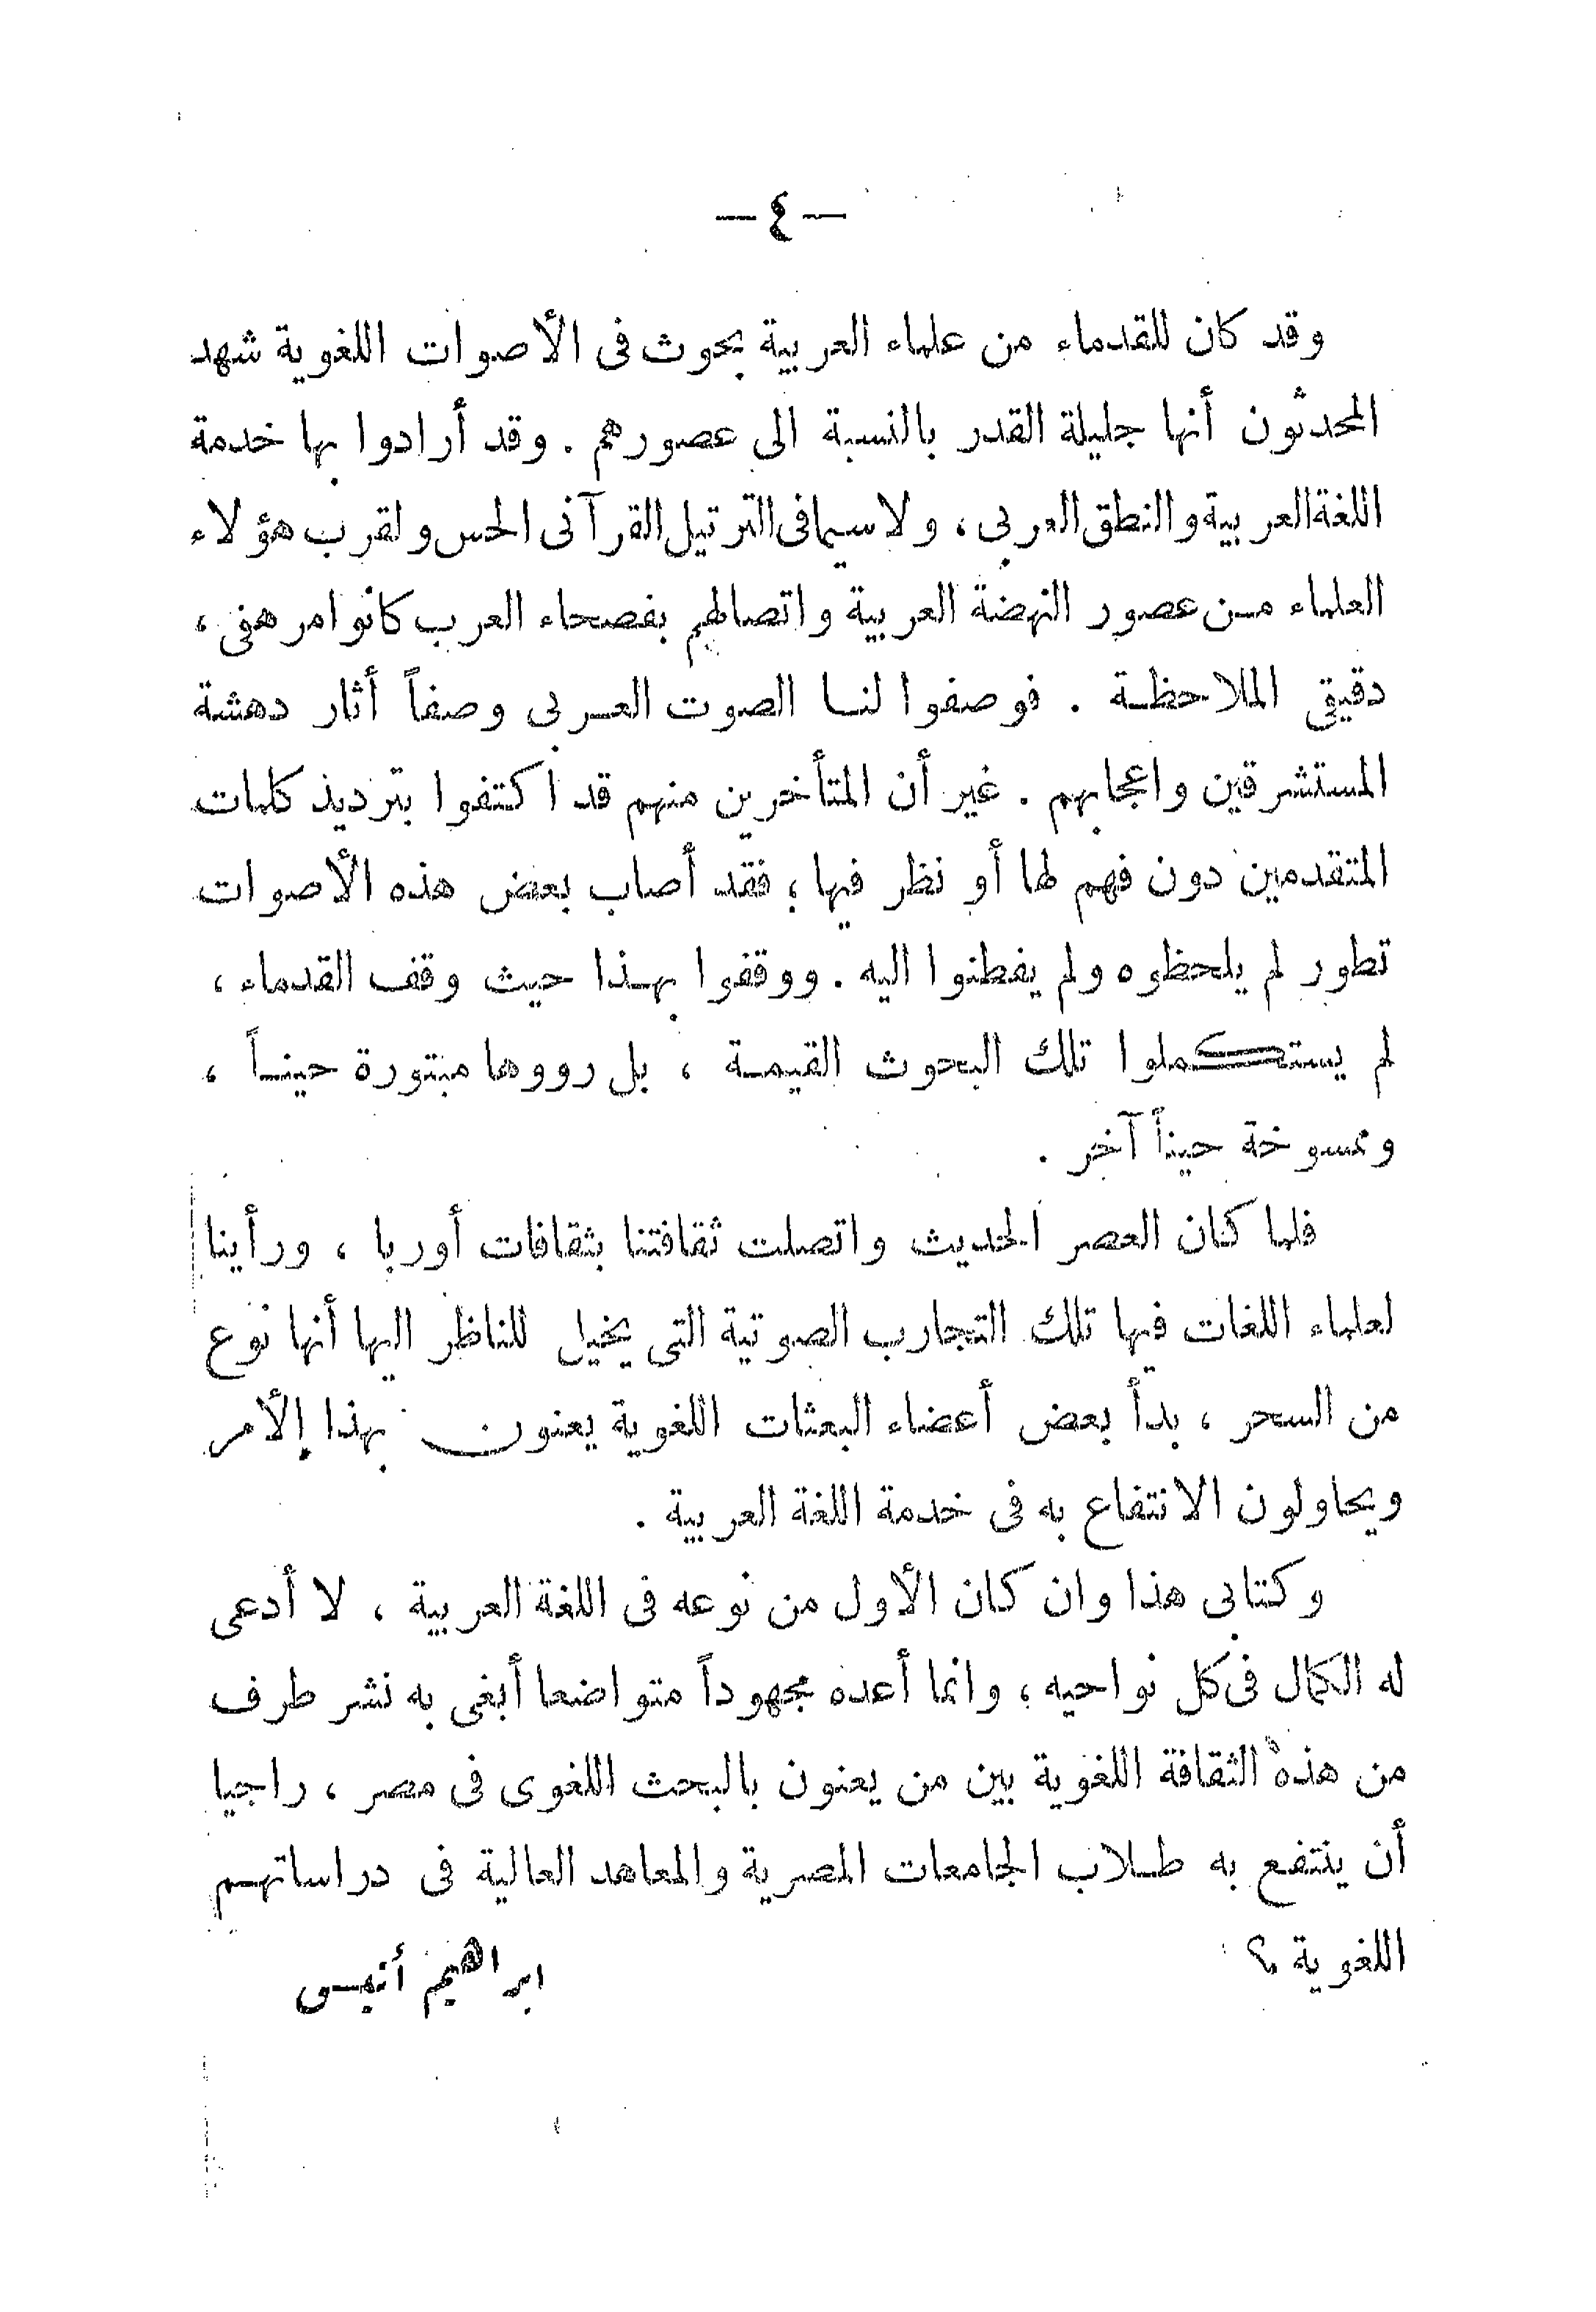 — ٤ —
وقد كان للقدماء من علماء العربية بحوث فى الأصوات اللغوية شهد
المحدثون أنها جليلة القدر بالنسبة الى عصورهم . وقد أرادوا بها خدمة
اللغة العربية والنطق العربى ، ولا سيما فى الترتيل القرآنى الحس ولقرب هؤلاء
العلماء من عصور النهضة العربية واتصالهم بفصحاء العرب كانوا مرهفى ،
دقيقى الملاحظة . فوصفوا لنا الصوت العربى وصفاً أثار دهشة
المستشرقين واعجابهم . غير أن المتأخرين منهم قد اكتفوا بترديد كلمات
المتقدمين دون فهم لها أو نظر فيها ؛ فقد أصاب بعض هذه الأصوات
تطور لم يلحظوه ولم يفطنوا اليه . ووقفوا بهذا حيث وقف القدماء ،
لم يستكملوا تلك البحوث القيمة ، بل رووها مبتورة حيناً ،
وممسوخة حيناً آخر .
فلما كان العصر الحديث واتصلت ثقافتنا بثقافات أوربا ، ورأينا
لعلماء اللغات فيها تلك التجارب الصوتية التى يخيل للناظر اليها أنها نوع
من السحر ، بدأ بعض أعضاء البعثات اللغوية يعنون بهذا الأمر
ويحاولون الانتفاع به فى خدمة اللغة العربية .
وكتابى هذا وان كان الأول من نوعه فى اللغة العربية ، لا أدعى
له الكمال فى كل نواحيه ؛ وانما أعده مجهوداً متواضعا أبغى به نشر طرف
من هذه الثقافة اللغوية بين من يعنون بالبحث اللغوى فى مصر ، راجيا
أن ينتفع به طلاب الجامعات المصرية والمعاهد العالية فى دراساتهم
اللغوية ؟
ابراهيم أنيس